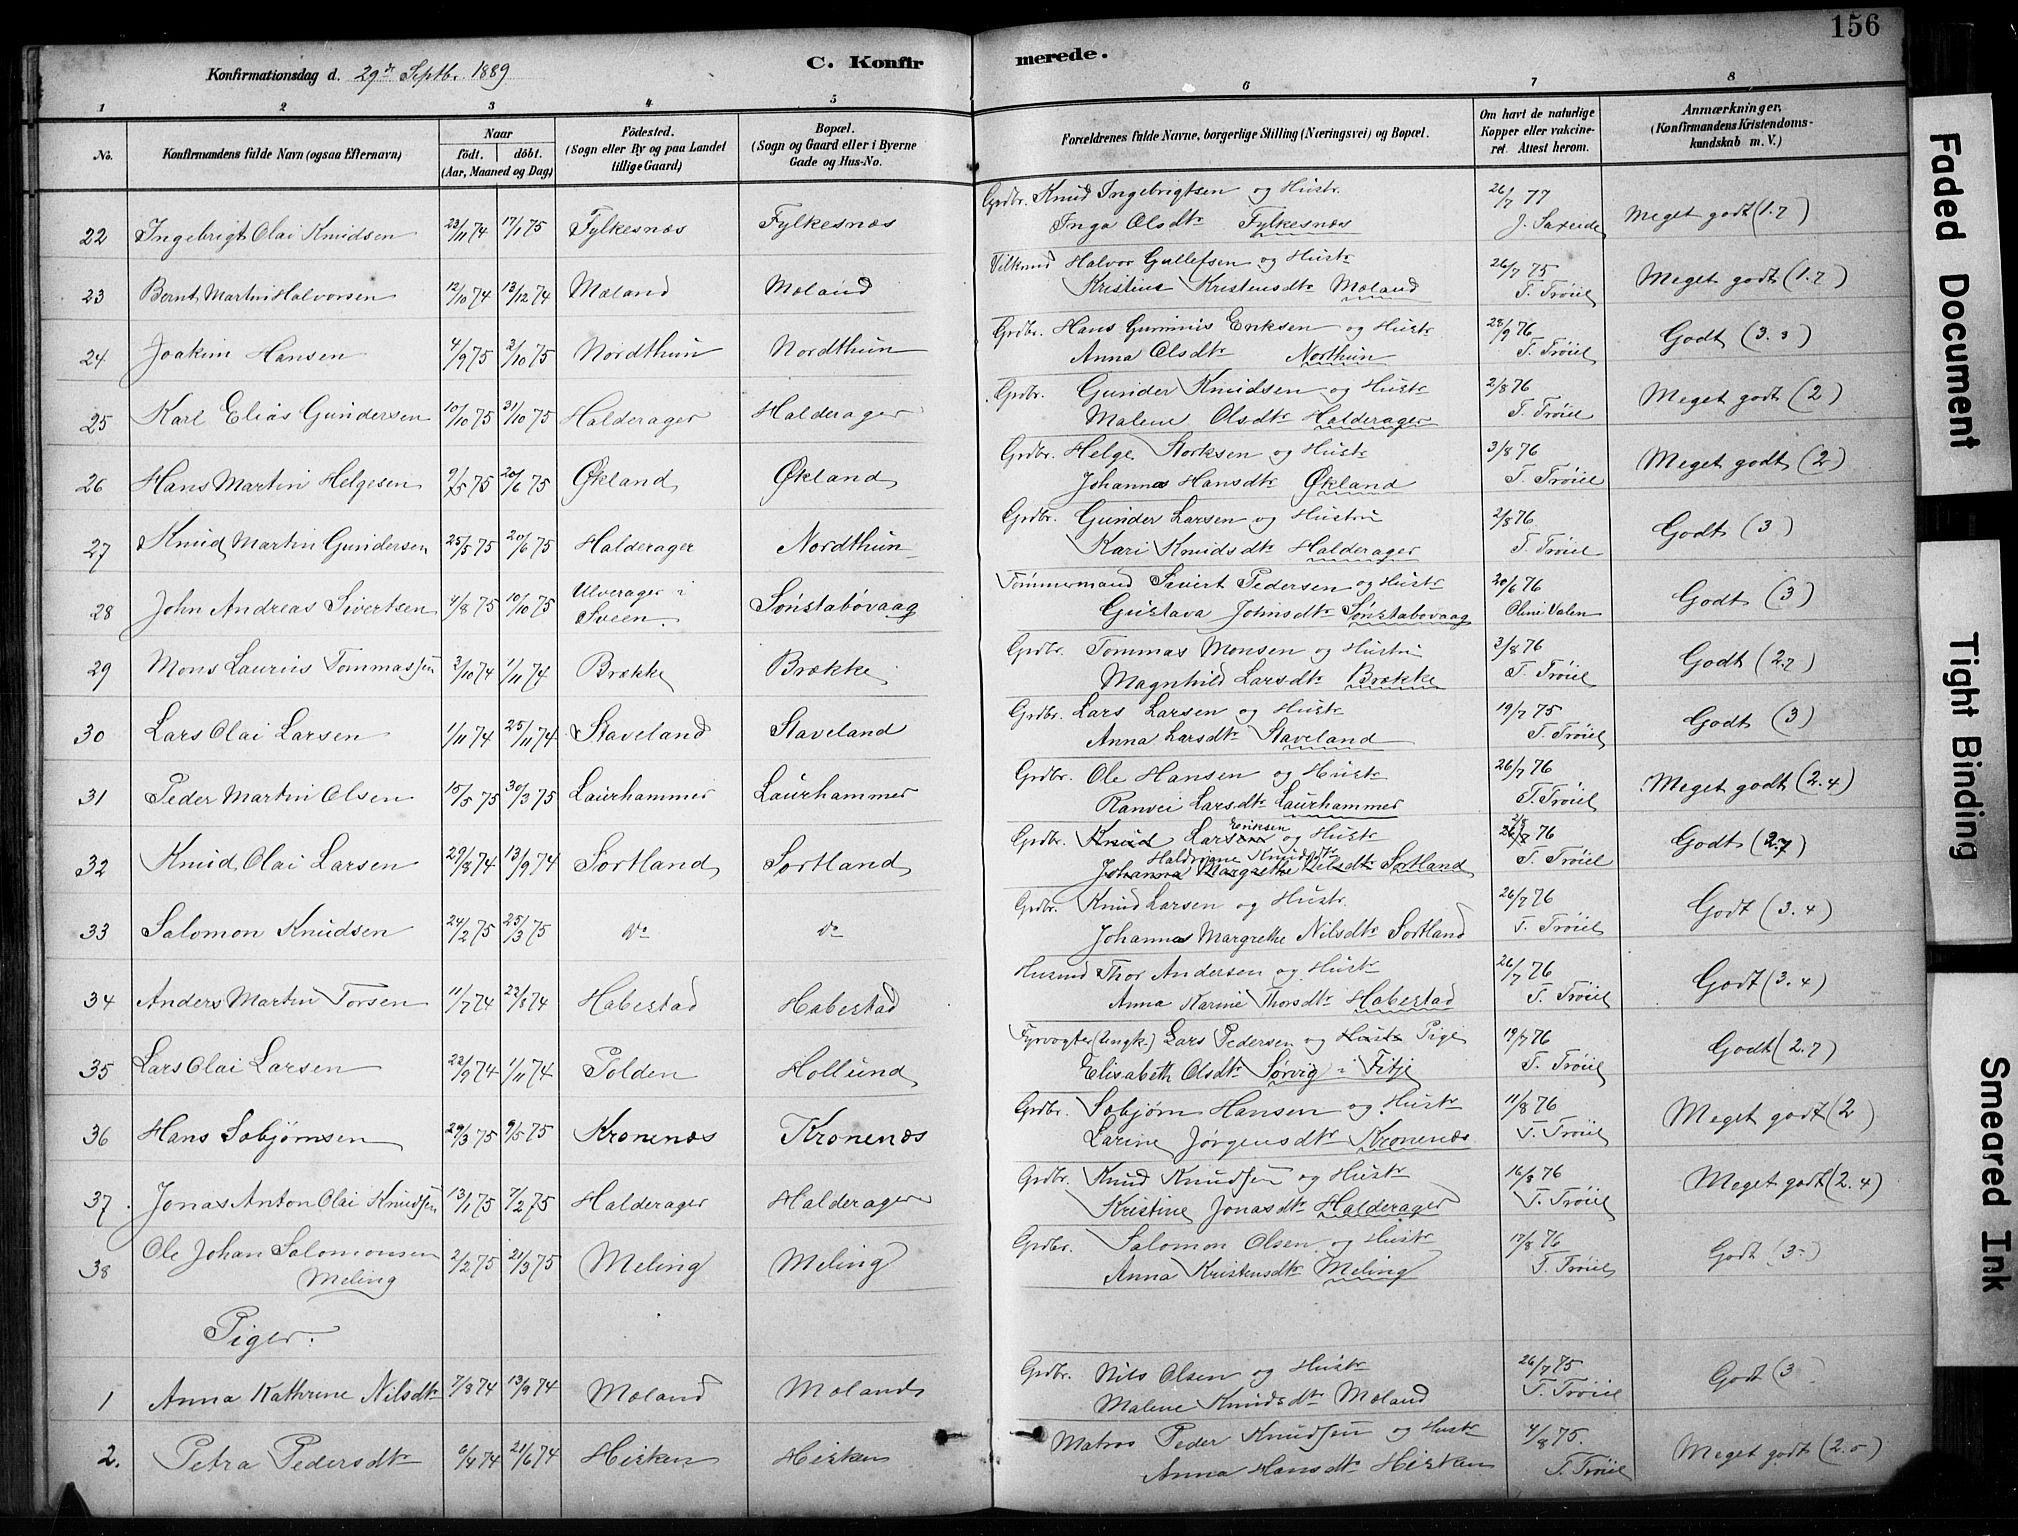 156
Konfirmationsdag d. 29de Septbr. 1889
C. Konfirmerede.
1 2 3 4 5 6 7 8
No. Konfirmandens fulde Navn (ogsaa Efternavn) Naar født. døbt. (Aar, Maaned og Dag) Fødested. (Sogn eller By og paa Landet tillige Gaard) Bopæl. (Sogn og Gaard eller i Byerne Gade og Hus-No. Forældrenes fulde Navne, borgerlige Stilling (Næringsvei) og Bopæl. Om havt de naturlige Kopper eller vakcineret. Attest herom. Anmærkninger. (Konfirmandens Kristendomskundskab m. V.)
22 Ingebrigt Olai Knudsen 23/11 74 17/1 75 Fylkesnæs Fylkesnæs Grdbr. Knud Ingebrigtsen og Hustr. Inga Olsdtr Fylkesnæs 26/7 77 Meget godt (1.7)
23 Bernt Martin Halvorsen 12/10 74 13/12 74 Mæland Mæland Halvor Gullefsen og Hustr Kristine Kristensdtr Mæland 26/7 75 T. Trøiel Meget godt (1.7)
24 Joakim Hansen 4/9 75 3/10 75 Nordthun Nordthun Grdbr. Hans Gummis Eriksen og Hustr Anna Olsdtr Northun 28/9 76 T. Trøiel Godt (3.3)
25 Karl Elias Gundersen 10/10 75 31/10 75 Halderager Halderager Grdbr. Gunder Knudsen og Hustr Malene Olsdtr Halderager 2/8 76 T. Trøiel Meget godt (2)
26 Hans Martin Helgesen 9/5 75 20/6 75 Økland Økland Grdbr. Helge Storksen og Hustr Johanna Hansdtr Økland 3/8 76 T. Trøiel Meget godt (2)
27 Knud Martin Gundersen 25/5 75 20/6 75 Halderager Nordthun Grdbr. Gunder Larsen og Hustru Kari Knudsdtr Halderager 2/8 76 T. Trøiel Godt (3)
28 John Andreas Sivertsen 4/8 75 10/10 75 Ulverager i Sveen. Sønstabøvaag Tømmermand Sivert Pedersen og Hustr Gustava Johnsdtr Sønstabøvaag 20/6 76 Oline Valen Godt (3)
29 Mons Laurits Tommassen 3/10 74 1/11 74 Brække Brække Grdbr. Tommas Monsen og Hustru Magnhild Larsdtr Brække 3/8 76 T. Trøiel Godt (2.7)
30 Lars Olai Larsen 1/11 74 25/11 74 Staveland Staveland Grdbr. Lars Larsen og Hustr Anna Larsdtr Staveland 19/7 75 T. Trøiel Godt (3)
31 Peder Martin Olsen 15/5 75 30/3 75 Laurhammer Laurhammer Grdbr. Ole Hansen og Hustr Ranvei Larsdtr Laurhammer 26/7 76 T. Trøiel Meget godt (2.4)
32 Knud Olai Larsen 23/8 74 13/9 74 Sortland Sortland Grdbr. Knud Larsen Eriksen og Hustr Knudsdtr Johanna Margrethe Nilsdtr Sortland 2/8 26/7 76 T. Trøiel Godt (2.7)
33 Salomon Knudsen 24/2 75 25/3 75 do do Grdbr. Knud Larsen og Hustr. Johanna Margrethe Nilsdtr Sortland 26/7 76 T. Trøiel Godt (3.4)
34 Anders Martin Torsen 11/7 74 23/8 74 Habestad Habestad Husmd Thor Andersen og Hustr Anna Karine Thorsdtr Habestad 26/7 76 T. Trøiel Godt (3.4)
35 Lars Olai Larsen 22/9 74 1/11 74 Folden Hollund Fyrvogter (Ungk.) Lars Pedersen og Hustr Pige Elisabeth Olsdtr Sørvig i Fitje 19/7 76 T. Trøiel Godt (2.7)
36 Hans Sobjørnsen 29/3 75 9/5 75 Kronenæs Kronenæs Grdbr. Sobjørn Hansen og Hustr Larine Jørgensdtr Kronenæs 11/8 76 T. Trøiel Meget godt (2)
37. Jonas Anton Olai Knudsen 13/1 75 7/2 75 Halderager Halderager Grdbr. Knud Knudsen og Hustr Kristine Jonasdtr Halderager 16/8 76 T. Trøiel Meget godt (2.4)
38 Ole Johan Salomonsen Meling 2/2 75 21/3 75 Meling Meling Grdbr. Salomon Olsen og Hustr Anna Kristensdtr Meling 17/8 76 T. Trøiel Godt (3)
Piger.
1 Anna Kathrine Nilsdtr 7/8 74 13/9 74 Mæland Mæland Grdbr. Nils Olsen og Hustr Malene Knudsdtr Mæland 26/7 75 T. Trøiel Godt (3
2. Petra Pedersdtr 6/4 74 21/6 74 Hisken Hisken Matros Peder Knudsen og Hustr Anna Hansdtr Hisken 4/8 75. T. Trøiel Meget godt (2.5)
Faded Document
Tight Binding
Smeared Ink